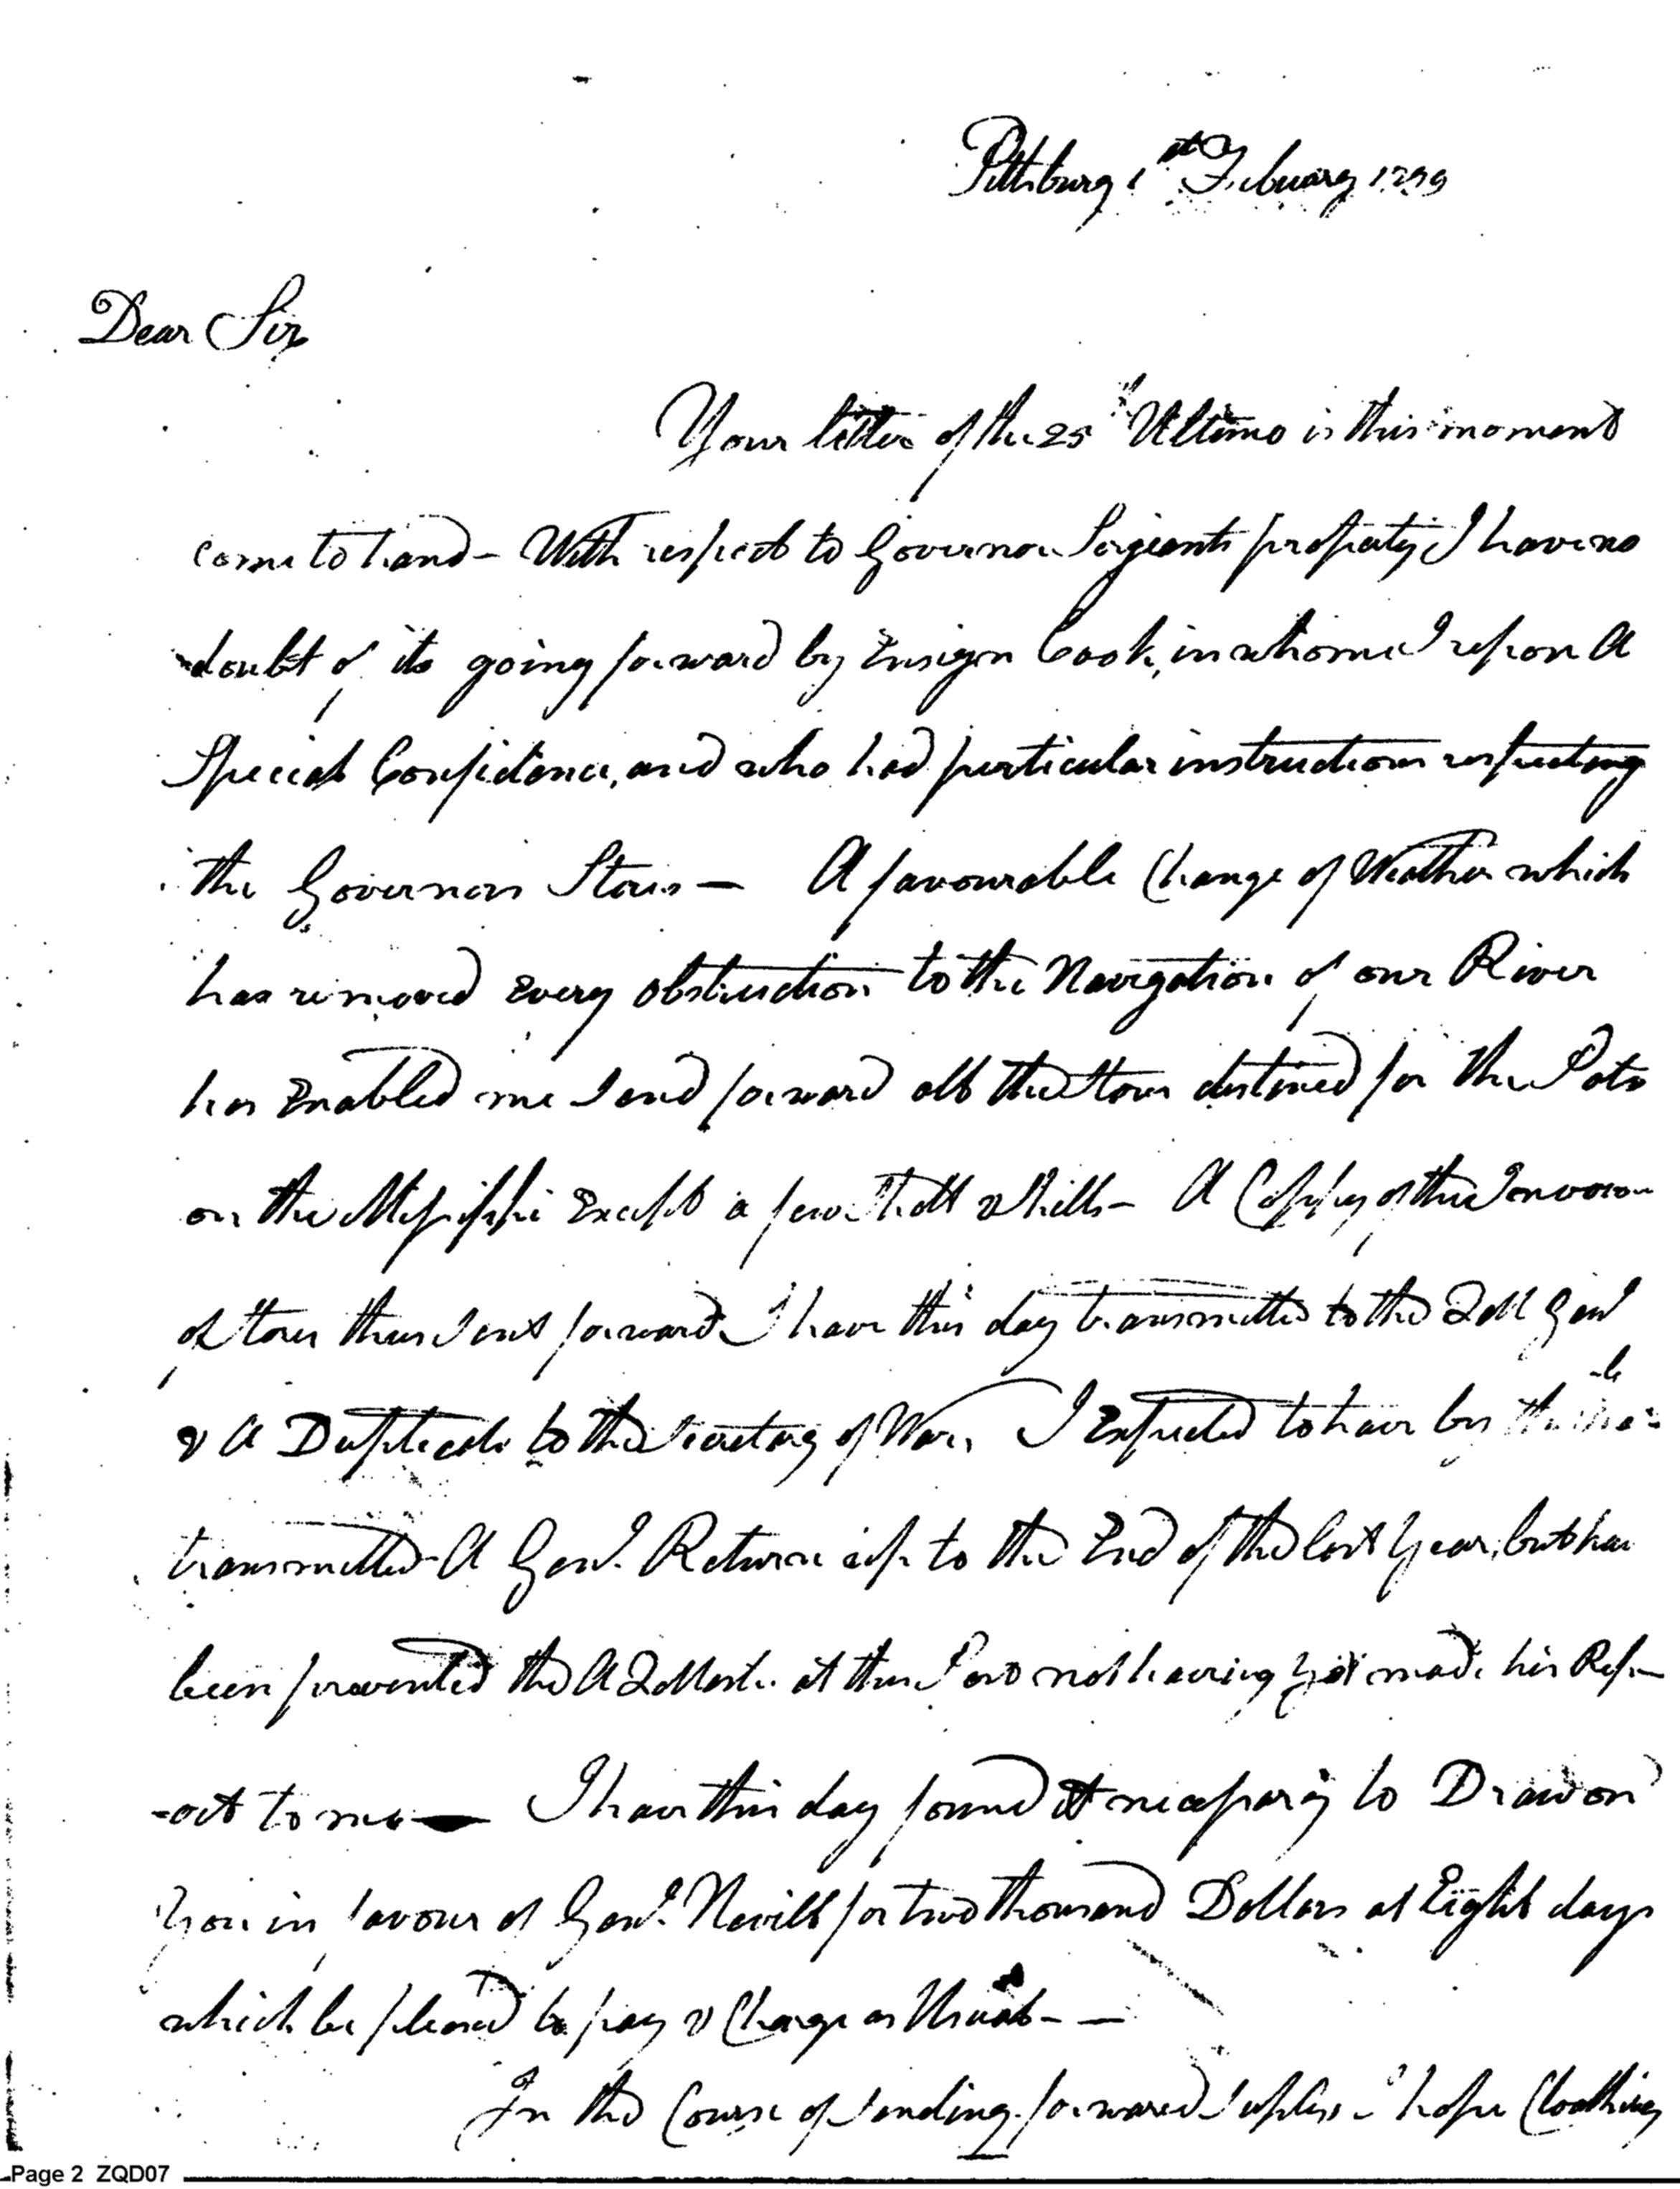 Pittsburg 1st February 1799
Dear Sir
Your letter of the 25th Ultimo is this moment
come to hand - With respect to Governor Sergeants property I have no
doubt of its going forward by Ensign Cook, in whome I repon A
Special Confidence, and who had particular instructions respecting
the Governors Stores — A favourable Change of Weather which
has removed Every obstruction to the Navigation of our River
has Enabled me Send forward all the Stores destined for the Posts
on the Missisippi Except a few Shott & Shells - A Coppy of the Invoices
of Stores thus Sent forward I have this day transmitted to the QM Genl
& A Duplicate to the Secretary of War, I Expected to have by this
transmitted A Genl. Return up to the End of the last Year, but have
been prevented the A QMastr. at this Post not having yet made his Rep-
-ort to me — I have this day found it necessary to Draw on
You in favour of Genl. Nevill for two thousand Dollars at Eight days
which be pleased to pay & Charge as Usual - —
In the Course of Sending forward Suplys I hope Cloathing
Page 2 ZQD07